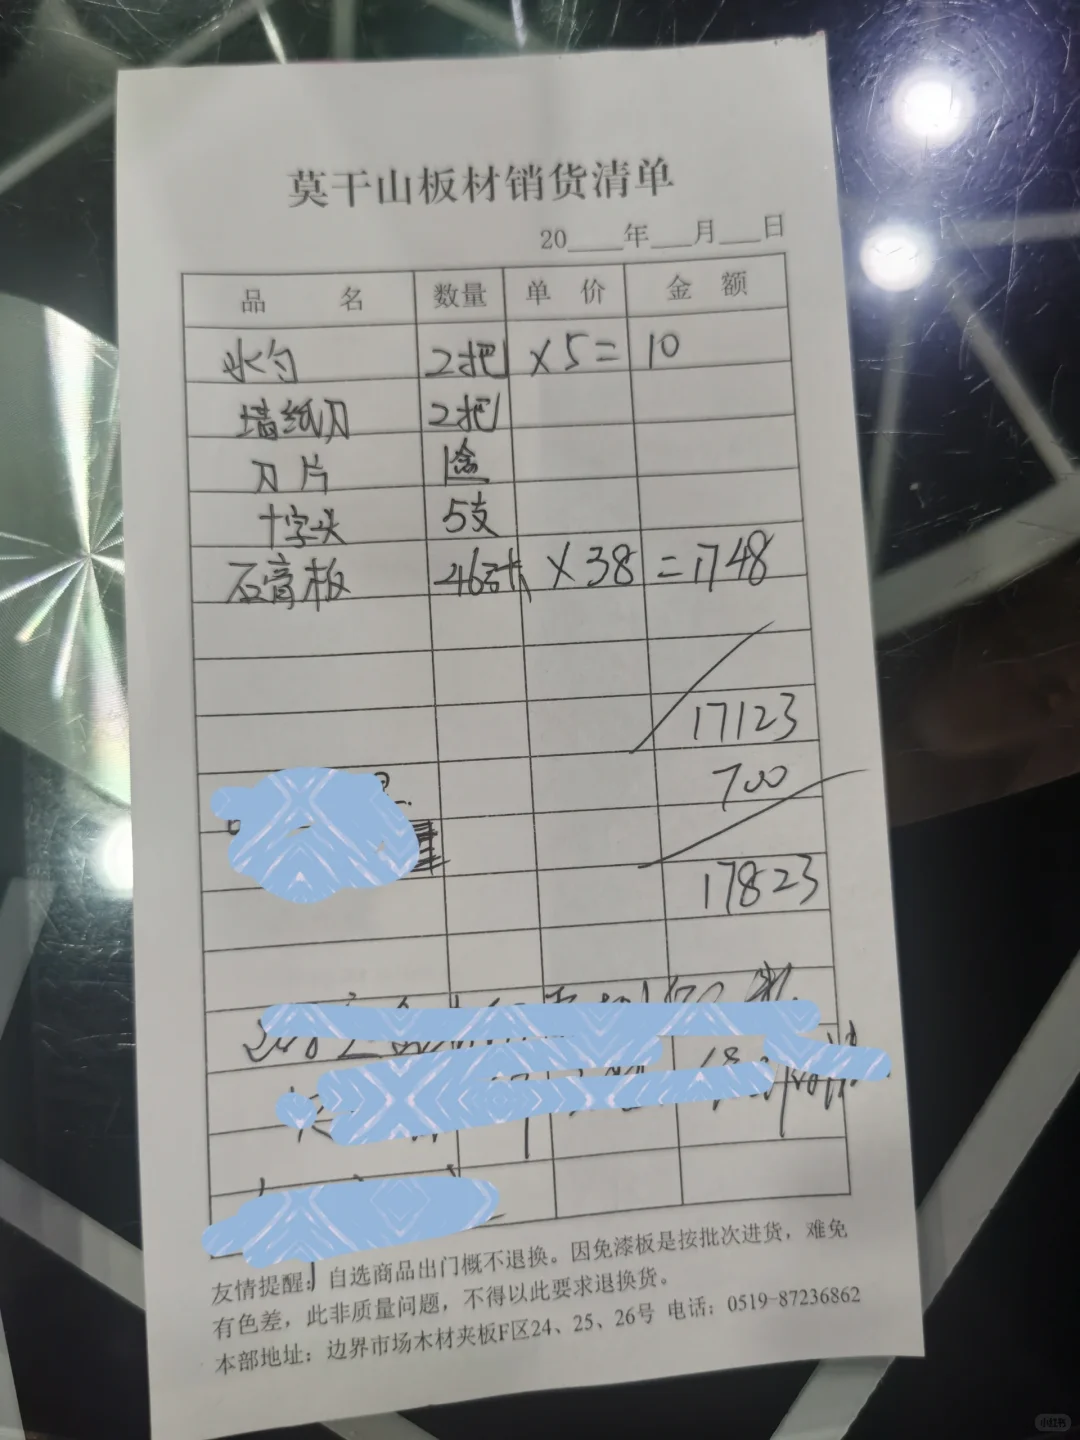 莫干山板材销货清单
20____年___月___日
品 名 数量 单 价 金 额
水勺 2把 ×5= 10
墙纸刀 2把
刀片 1盒
十字头 5支
石膏板 46张 ×38 =1748
17123
700
17823
友情提醒：自选商品出门概不退换。因免漆板是按批次进货，难免
有色差，此非质量问题，不得以此要求退换货。
本部地址：边界市场木材夹板F区24、25、26号 电话：0519-87236862
小红书